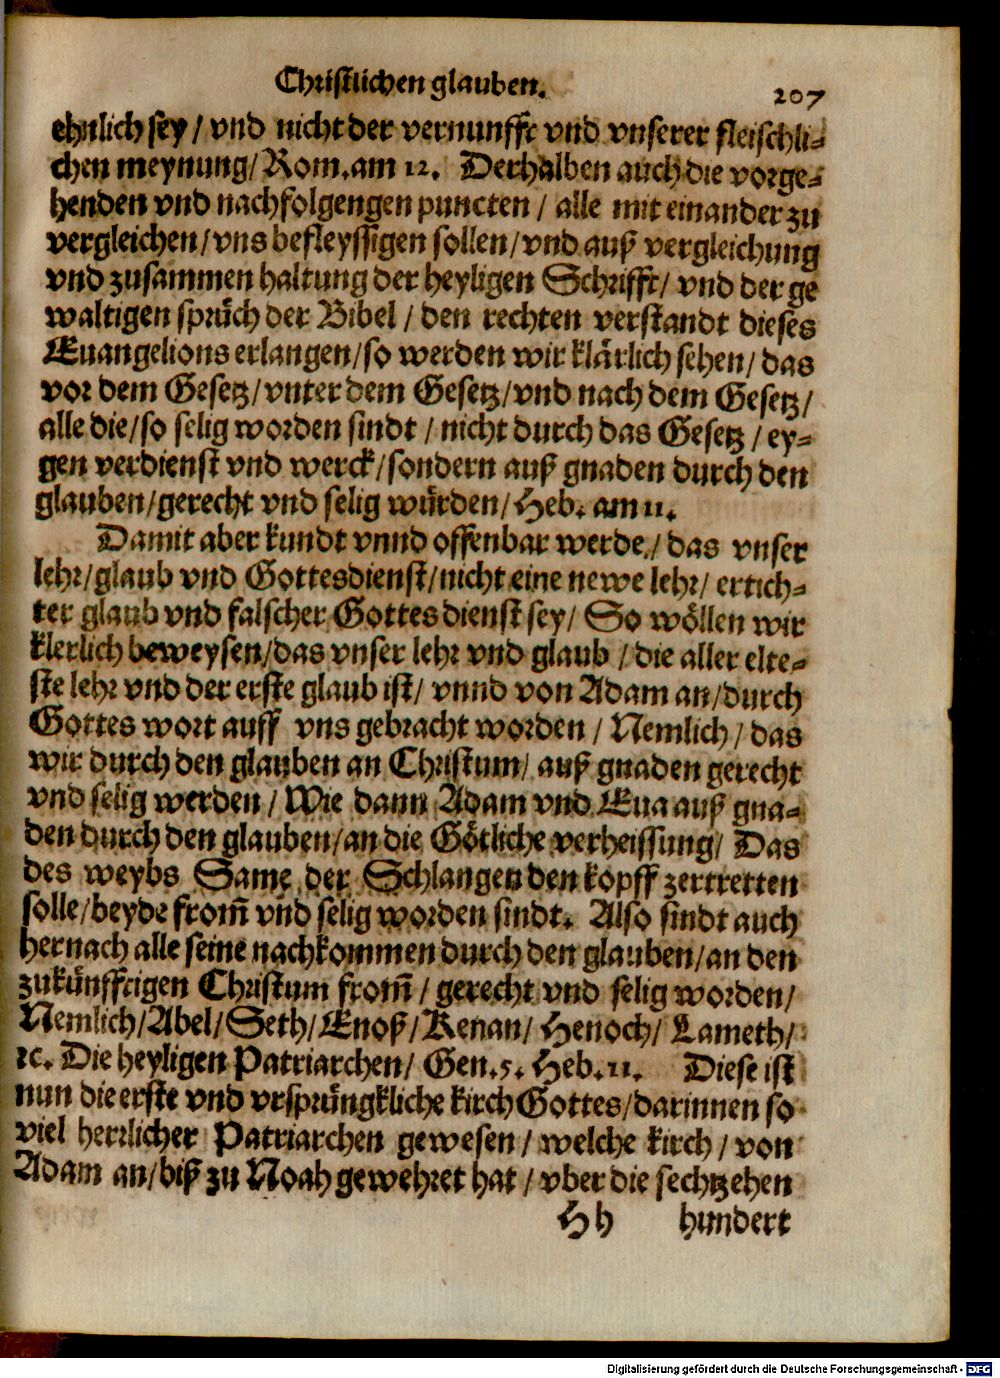 Christlichen glauben.
207
ehnlich sey / vnd nicht der vernunfft vnd vnserer fleischli-
chen meynung / Rom. am 12. Derhalben auch die vorge-
henden vnd nachfolgengen puncten / alle mit einander zu
vergleichen / vns befleyssigen sollen / vnd auß vergleichung
vnd zusammen haltung der heyligen Schrifft / vnd der ge
waltigen sprüch der Bibel / den rechten verstandt dieses
Euangelions erlangen / so werden wir klärlich sehen / das
vor dem Gesetz / vnter dem Gesetz / vnd nach dem Gesetz /
alle die / so selig worden sindt / nicht durch das Gesetz / ey-
gen verdienst vnd werck / sondern auß gnaden durch den
glauben / gerecht vnd selig würden / Heb. am 11.
Damit aber kundt vnnd offenbar werde / das vnser
lehr / glaub vnd Gottesdienst / nicht eine newe lehr / ertich-
ter glaub vnd falscher Gottes dienst sey / So wöllen wir
klerlich beweysen / das vnser lehr vnd glaub / die aller elte-
ste lehr vnd der erste glaub ist / vnnd von Adam an / durch
Gottes wort auff vns gebracht worden / Nemlich / das
wir durch den glauben an Christum / auß gnaden gerecht
vnd selig werden / Wie dann Adam vnd Eua auß gna-
den durch den glauben / an die Götliche verheissung / Das
des weybs Same der Schlangen den kopff zertretten
solle / beyde from̄ vn̄d selig worden sindt. Also sindt auch
hernach alle seine nachkommen durch den glauben / an den
zukünfftigen Christum from̄ / gerecht vnd selig worden /
Nemlich / Abel / Seth / Enoß / Kenan / Henoch / Lameth /
ꝛc. Die heyligen Patriarchen / Gen. 5. Heb. 11. Diese ist
nun die erste vnd vrsprüngkliche kirch Gottes / darinnen so
viel herrlicher Patriarchen gewesen / welche kirch / von
Adam an / biß zu Noah gewehret hat / vber die sechtzehen
Hh hundert
Digitalisierung gefördert durch die Deutsche Forschungsgemeinschaft - DFG